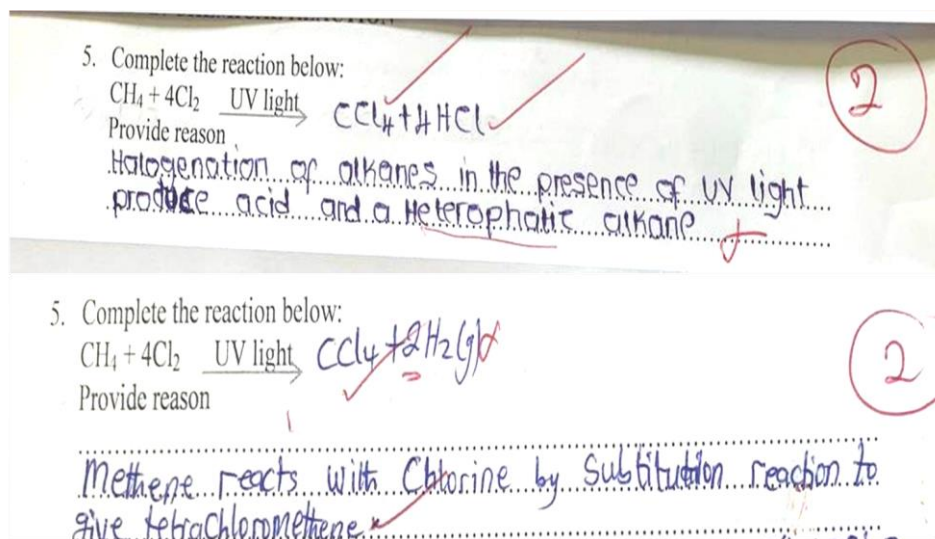 5. Complete the reaction below:
CH₄ + 4Cl₂ UV light CCl₄ + 4HCl
Provide reason
Halogenation of alkanes in the presence of UV light
produce acid and a Heterophatic alkane
2
5. Complete the reaction below:
CH₄ + 4Cl₂ UV light CCl₄ + 2H₂(g)
Provide reason
Methene reacts with Chlorine by Substitution reaction to
give tetrachloromethene
2